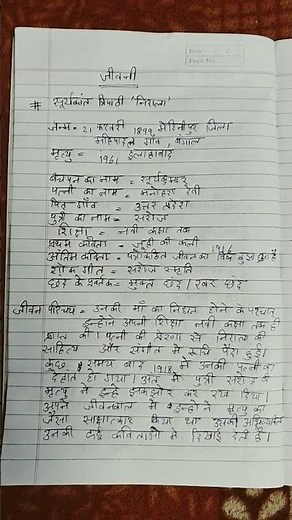 जीवनी
# सूर्यकांत त्रिपाठी 'निराला'
जन्म = 21 फरवरी 1899, मेदिनीपुर जिला
महिषादल गाँव, बंगाल
मृत्यु = 1961 इलाहाबाद
बचपन का नाम = सूर्यकुमार
पत्नी का नाम = मनोहरा देवी
पितृ गाँव = उत्तर
पुत्री का नाम = सरोज
शिक्षा = नवीं कक्षा तक
प्रथम कविता = जूही की कली 1916
अंतिम कविता = पत्रोत्कंठित जीवन का विष बुझा हुआ है
शोक गीत = सरोज स्मृति
छंद के प्रवर्तक = मुक्त छंद / स्वर छंद
जीवन परिचय = उनकी माँ का निधन होने के पश्चात्
इन्होने अपनी शिक्षा नवीं कक्षा तक ही
प्राप्त की। पत्नी की प्रेरणा से निराला की
साहित्य और संगीत में रूचि पैदा हुई।
कुछ समय बाद 1918 में उनकी पत्नी का
देहांत हो गया। अंत में पुत्री सरोज की
मृत्यु ने इन्हें झकझोर कर रख दिया।
अपने जीवनकाल में इन्होने मृत्यु का
जैसा साक्षात्कार किया था उसकी अभिव्यक्ति
उनकी कई कविताओं में दिखाई देती है।